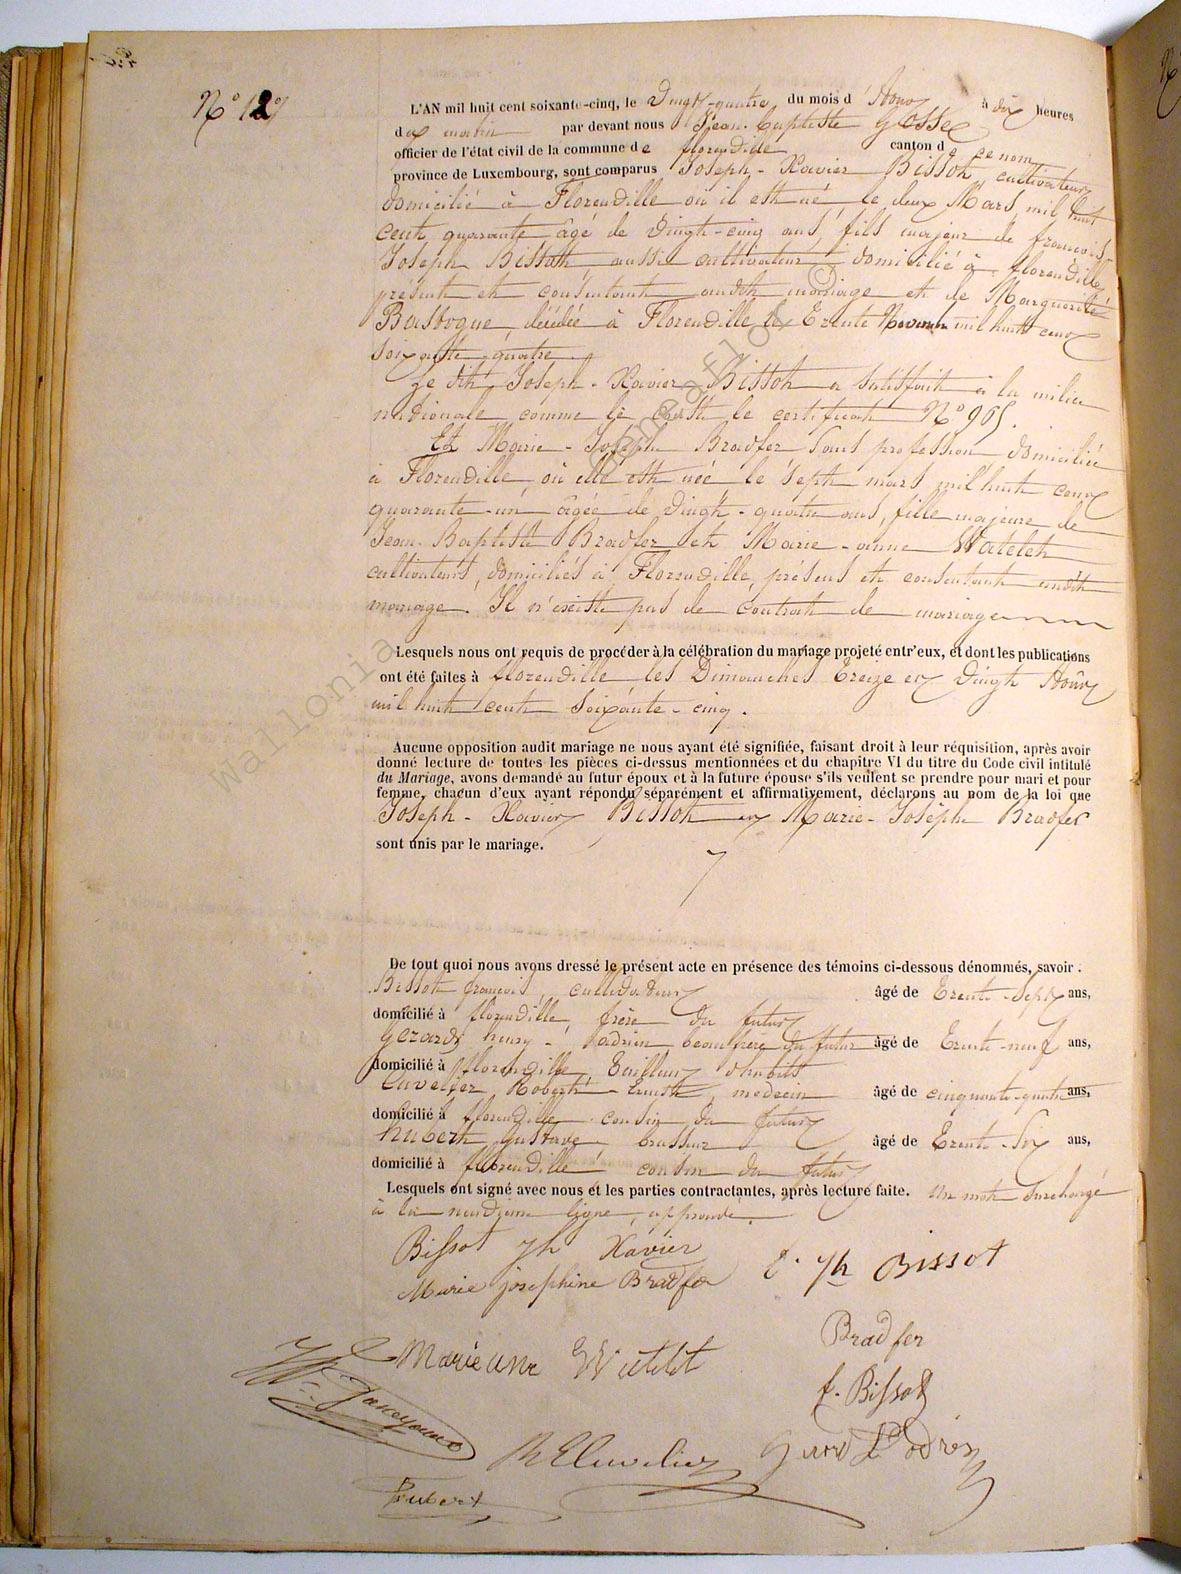 N° 12
L'AN mil huit cent soixante-cinq, le vingt-quatre du mois d'Août à dix heures
du matin par devant nous Jean-Baptiste Gosse
officier de l'état civil de la commune de florenville canton de ce nom
province de Luxembourg, sont comparus Joseph-Xavier Bissot, cultivateur
domicilié à Florenville où il est né le deux Mars mil huit
cent quarante âgé de vingt-cinq ans, fils majeur de françois
Joseph Bissot aussi cultivateur domicilié à florenville,
présent et consentant audit mariage et de Marguerite
Bastogne, décédée à Florenville le Trente Novembre mil huit cent
soixante-quatre.
Le dit Joseph-Xavier Bissot a satisfait à la milice
nationale comme le certificat N° 965.
Et Marie-Joseph Bradfer sans profession domiciliée
à Florenville où elle est née le sept mars mil huit cent
quarante-un âgée de vingt-quatre ans, fille majeure de
Jean-Baptiste Bradfer et Marie-anne Watelet
cultivateurs, domiciliés à Florenville, présens et consentant audit
mariage. Il n'existe pas de contrat de mariage
Lesquels nous ont requis de procéder à la célébration du mariage projeté entr'eux, et dont les publications
ont été faites à florenville les Dimanches Treize et Vingt Août
mil huit cent soixante-cinq.
Aucune opposition audit mariage ne nous ayant été signifiée, faisant droit à leur réquisition, après avoir
donné lecture de toutes les pièces ci-dessus mentionnées et du chapitre VI du titre du Code civil intitulé
du Mariage, avons demandé au futur époux et à la future épouse s'ils veulent se prendre pour mari et pour
femme, chacun d'eux ayant répondu séparément et affirmativement, déclarons au nom de la loi que
Joseph-Xavier Bissot et Marie-Josèphe Bradfer
sont unis par le mariage.
De tout quoi nous avons dressé le présent acte en présence des témoins ci-dessous dénommés, savoir :
Bissot françois, cultivateur âgé de Trente-Sept ans,
domicilié à florenville, frère du futur
Gerard henry-adrien beaufrère du futur âgé de Trente-neuf ans,
domicilié à florenville, Tailleur d'habits
Cuvelier Robert-Ernest, medecin âgé de cinquante-quatre ans,
domicilié à florenville cousin du futur
hubert Gustave brasseur âgé de Trente-Six ans,
domicilié à florenville cousin du futur
Lesquels ont signé avec nous et les parties contractantes, après lecture faite. Un mot surchargé
à la neuvième ligne, approuvé.
Bissot Jh Xavier
Marie josephine Bradfer
Jh Bissot
Bradfer
Marie anne Watelet
f. Bissot
R E Cuvelier
Hubert
Wallonia
©